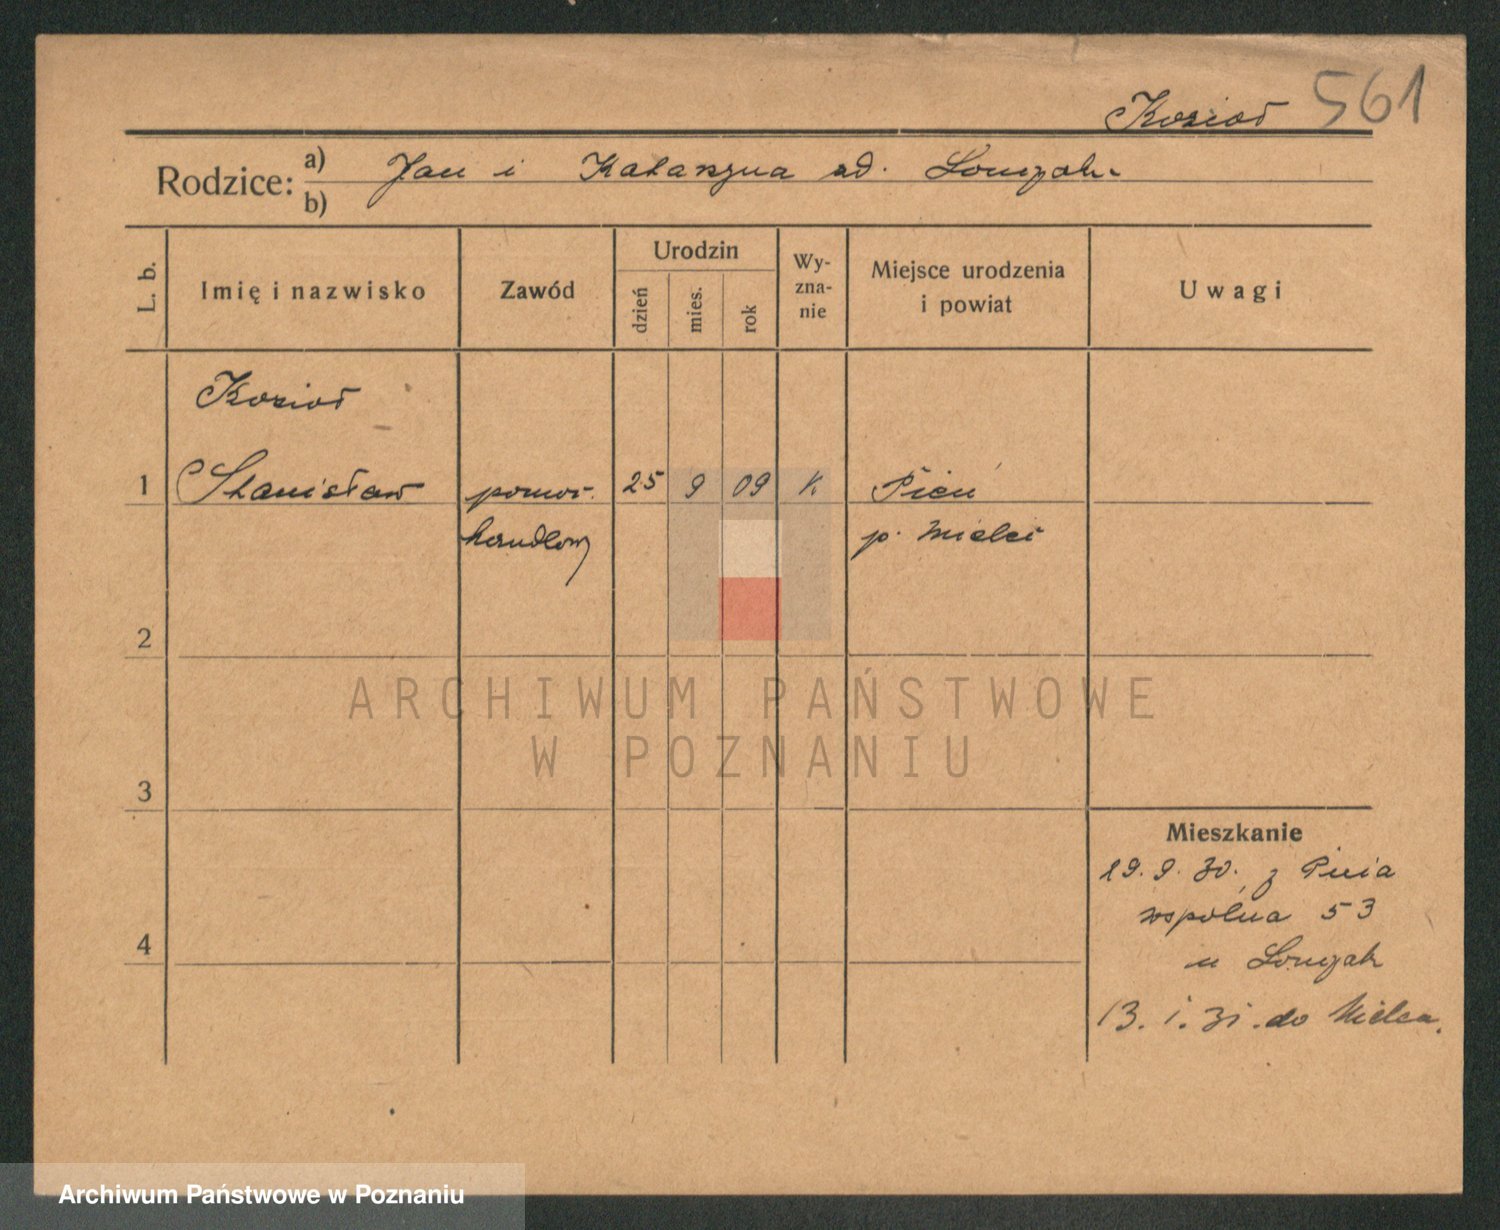 Kozioł 561
Rodzice: a) Jan i Katarzyna
b)
L. b.
Imię i nazwisko
Zawód
Urodzin
dzień
mies.
rok
Wy-
zna-
nie
Miejsce urodzenia
i powiat
Uwagi
Kozioł
1 Stanisław pomoc. 25 9 09 k. Pień
handlowy p. Mielec
2
3
4
Mieszkanie
29. 9. 30. z Pnia
wspólna 53
u
13. 1. 31. do Mielca.
ARCHIWUM PAŃSTWOWE
W POZNANIU
Archiwum Państwowe w Poznaniu